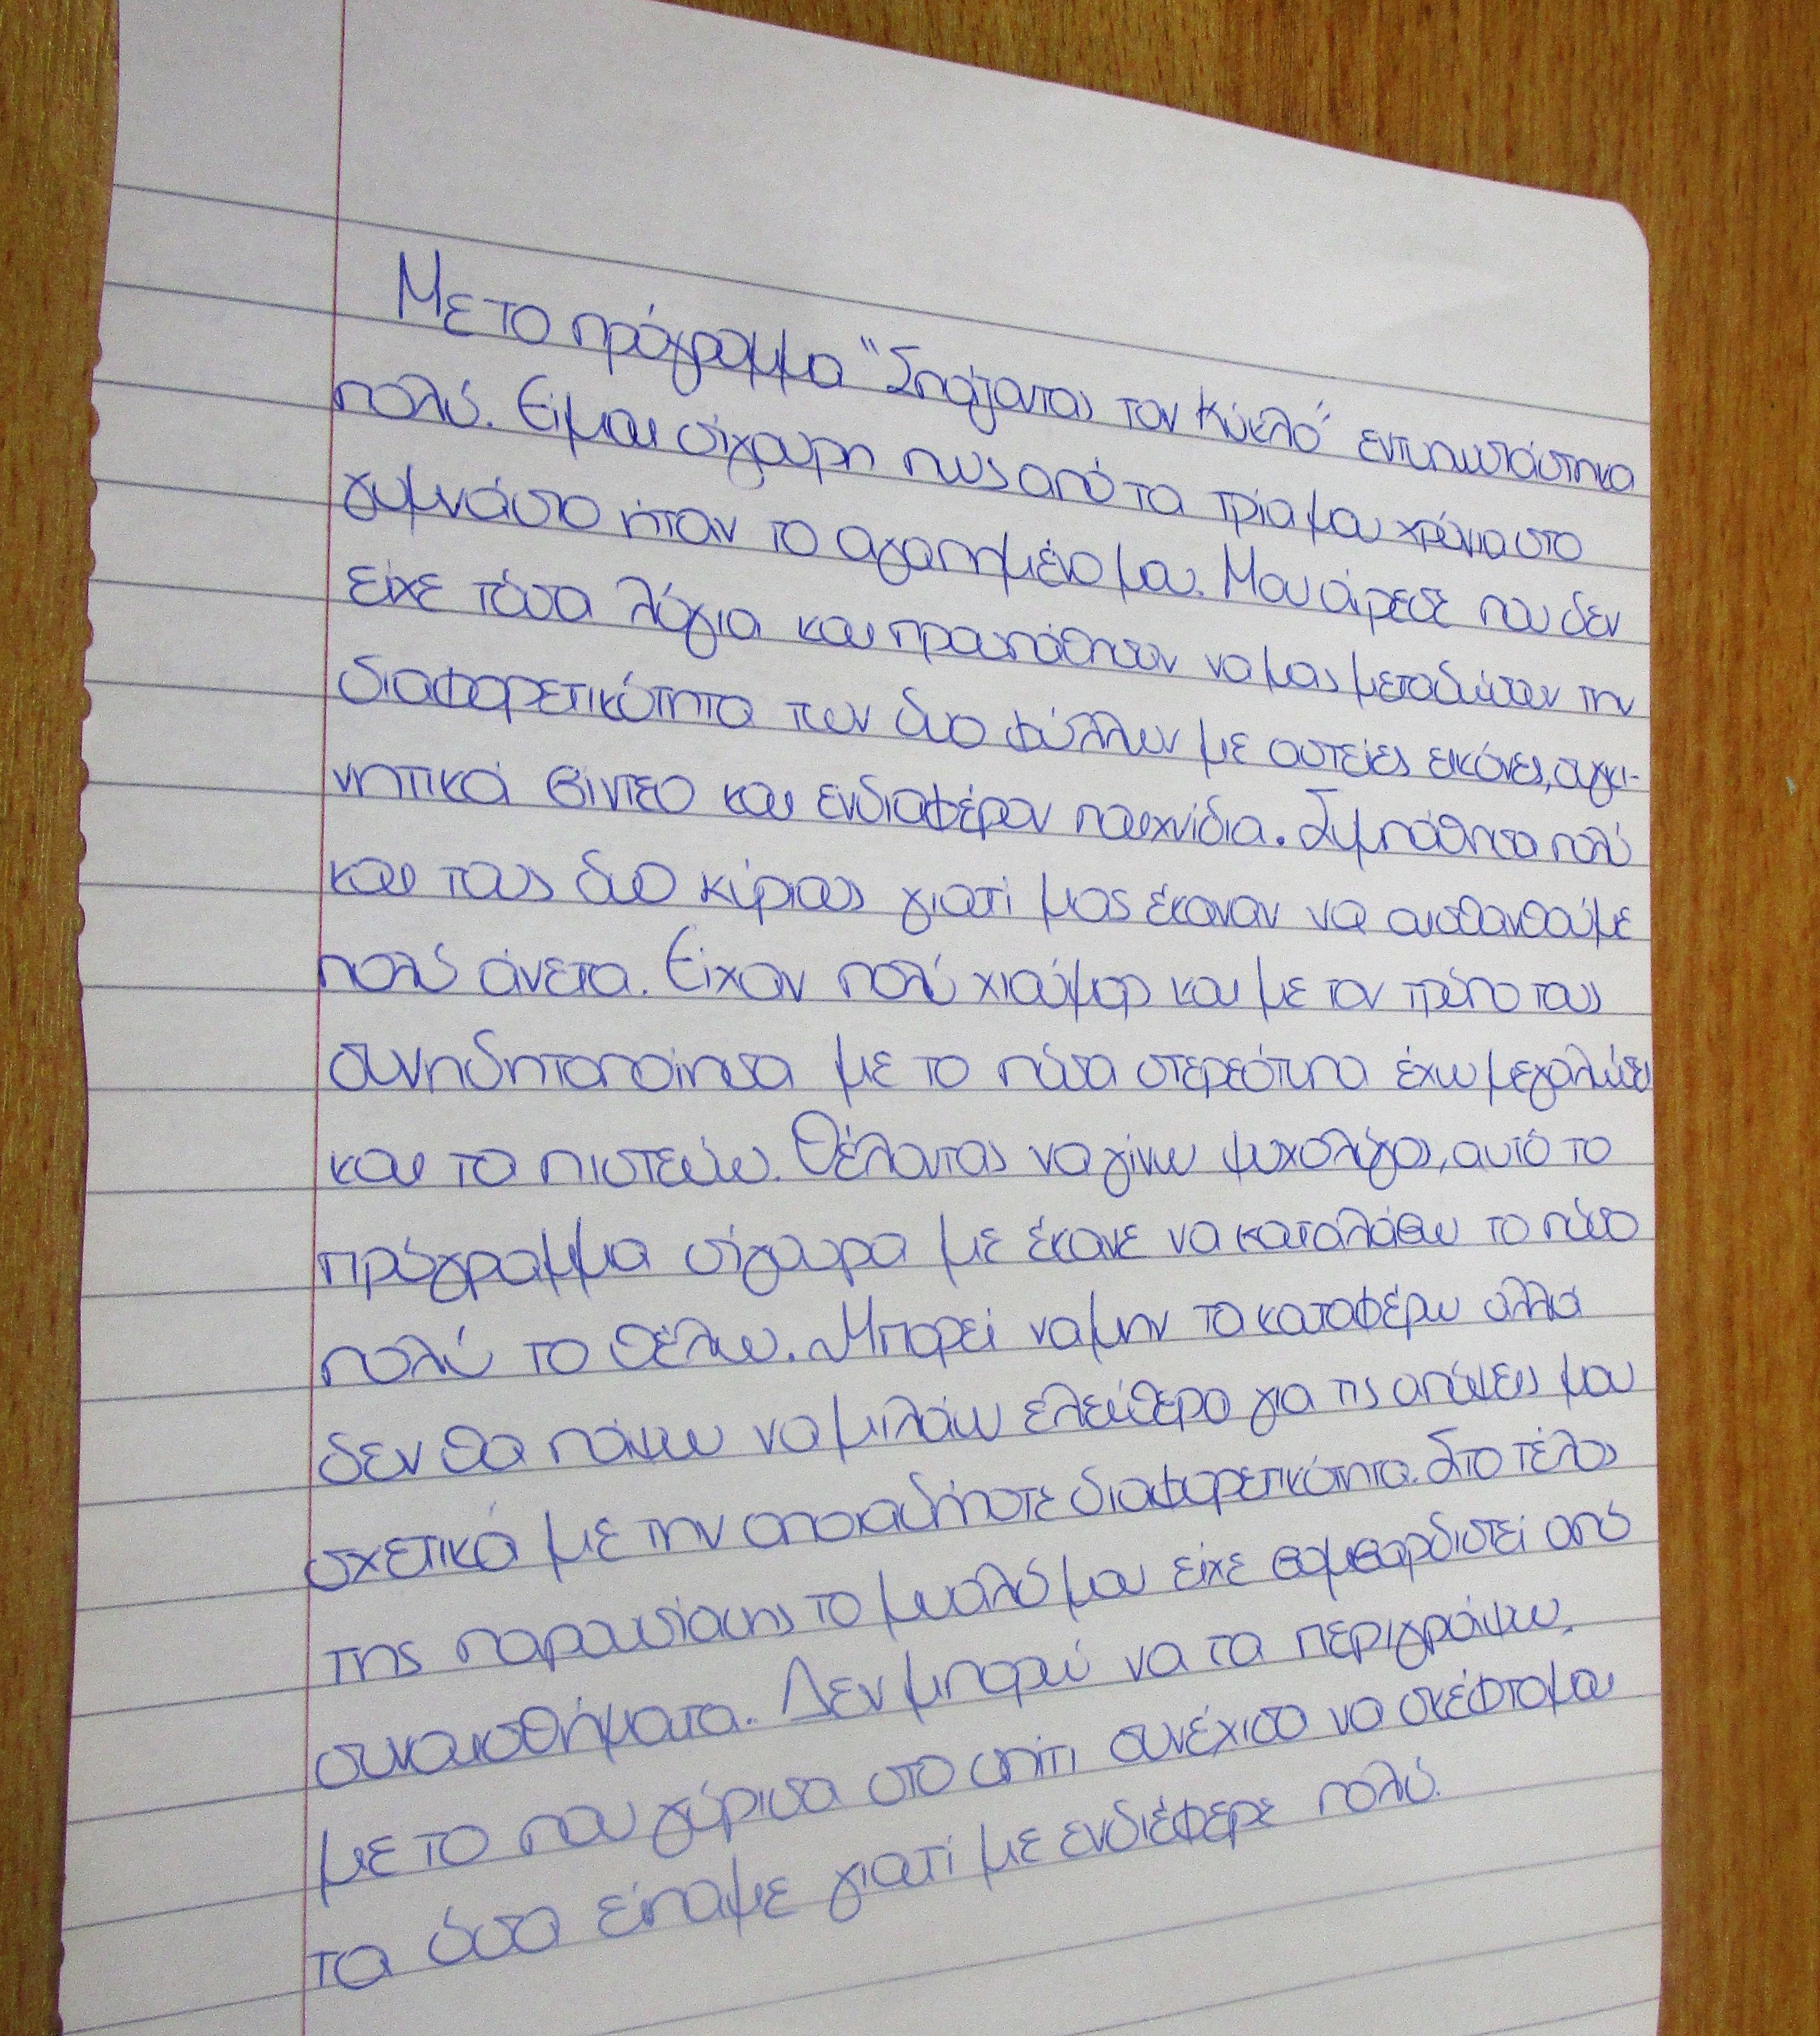 Με το πρόγραμμα "Σπάζοντας τον Κύκλο" εντυπωσιάστηκα
πολύ. Είμαι σίγουρη πως από τα τρία μου χρόνια στο
γυμνάσιο ήταν το αγαπημένο μου. Μου άρεσε που δεν
είχε τόσα λόγια και προσπάθησαν να μας μεταδώσουν την
διαφορετικότητα των δυο φύλλων με αστείες εικόνες, συγκι-
νητικά βίντεο και ενδιαφέρον παιχνίδια. Συμπάθησα πολύ
και τους δυο κύριους γιατί μας έκαναν να αισθανθούμε
πολύ άνετα. Είχαν πολύ χιούμορ και με τον τρόπο τους
συνηδητοποίησα με το πόσα στερεότυπα έχω μεγαλώσει
και τα πιστεύω. Θέλοντας να γίνω ψυχολόγος, αυτό το
πρόγραμμα σίγουρα με έκανε να καταλάβω το πόσο
πολύ το θέλω. Μπορεί να μην τα καταφέρω αλλά
δεν θα πάψω να μιλάω ελεύθερα για τις απόψεις μου
σχετικά με την οποιαδήποτε διαφορετικότητα. Στο τέλος
της παρουσίασης το μυαλό μου είχε βομβαρδιστεί από
συναισθήματα. Δεν μπορώ να τα περιγράψω.
με το που γύρισα στο σπίτι συνέχισα να σκέφτομαι
τα όσα είπαμε γιατί με ενδιέφερε πολύ.